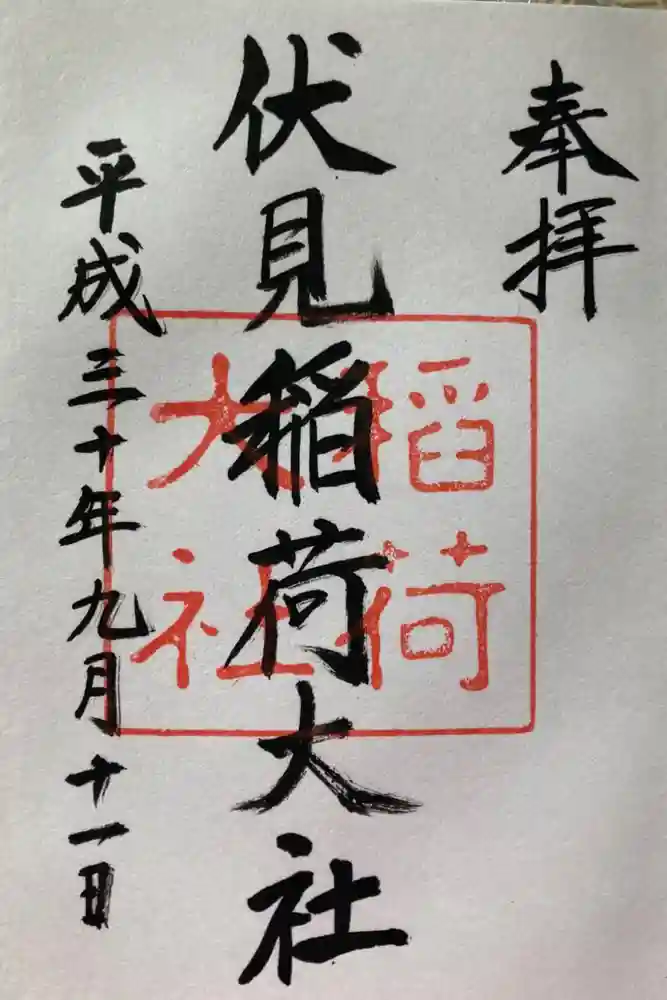 奉拝
伏見稲荷大社
稲荷
大社
平成三十年九月十一日